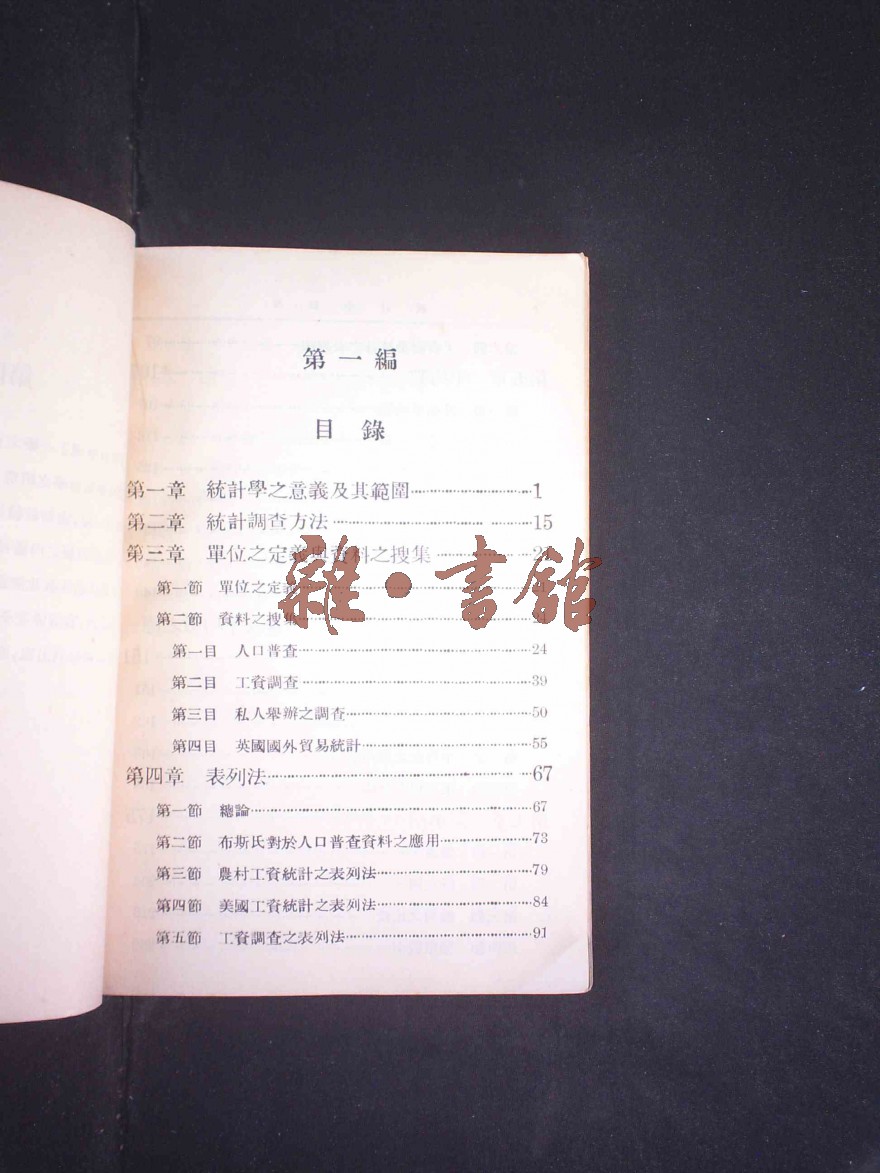 第一編
目錄
第一章 統計學之意義及其範圍 1
第二章 統計調查方法 15
第三章 單位之定義與資料之搜集 21
第一節 單位之定義 21
第二節 資料之搜集
第一目 人口普查 24
第二目 工資調查 39
第三目 私人舉辦之調查 50
第四目 英國國外貿易統計 55
第四章 表列法 67
第一節 總論 67
第二節 布斯氏對於人口普查資料之應用 73
第三節 農村工資統計之表列法 79
第四節 美國工資統計之表列法 84
第五節 工資調查之表列法 91
雜·書館